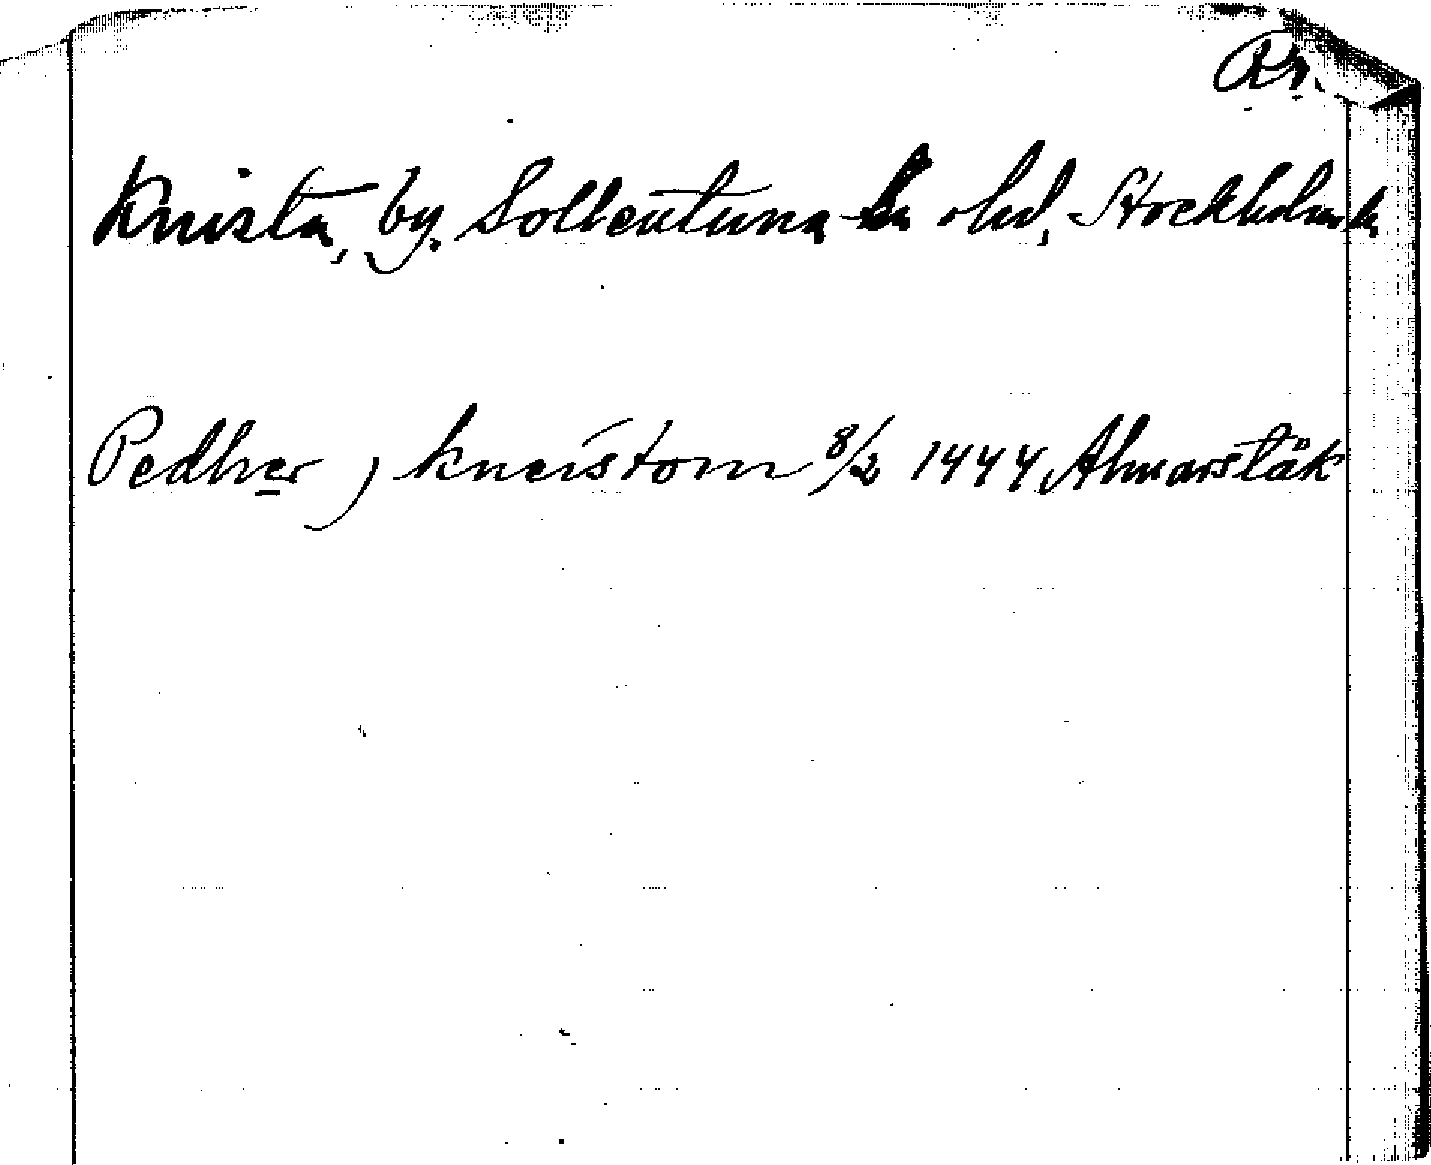 Rr.
Knista, by. Sollentuna sn o hd, Stockholms l.
Pedher j kneistom 8/2 1444 Almarstäk